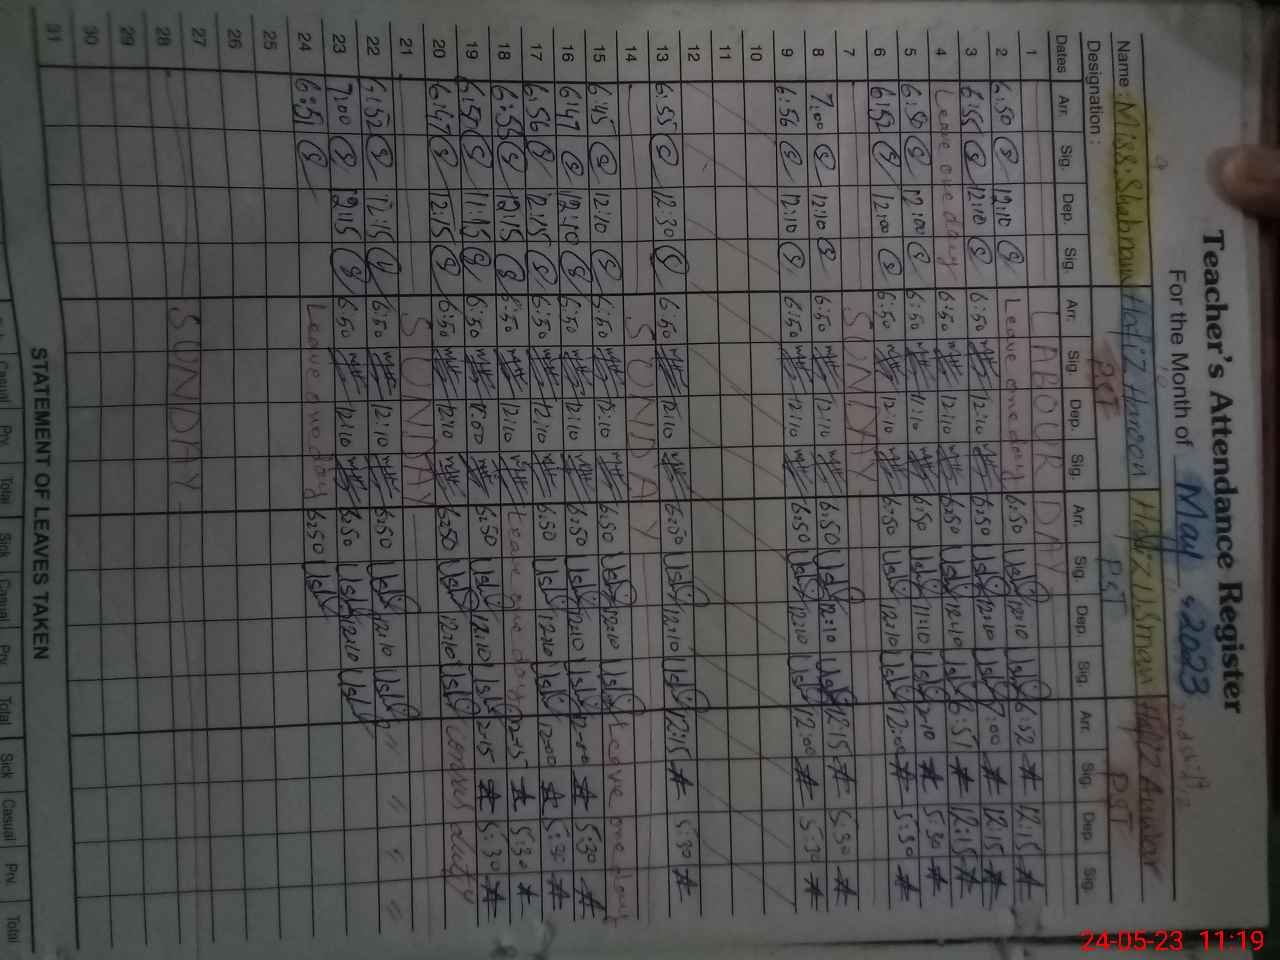 Teacher's Attendance Register
For the Month of May, 2023
2nd shift
Name: Miss: Shabnam Hafiz Haroon Hafiz Usman Hafiz Anwar
Designation: PST PST PST
Dates Arr. Sig. Dep. Sig. Arr. Sig. Dep. Sig. Arr. Sig. Dep. Sig. Arr. Sig. Dep. Sig.
1 LABOUR DAY
2 6:50 12:10 Leave one day 6:50 12:10 6:52 12:15
3 6:55 12:10 6:50 12:10 6:50 12:10 7:00 12:15
4 Leave one day 6:50 12:10 6:50 12:10 6:51 12:15
5 6:50 12:00 6:50 11:10 6:50 11:10 2:10 5:30
6 6:52 12:00 6:50 12:10 6:50 12:10 12:00 5:30
7 SUNDAY
8 7:00 12:10 6:50 12:10 6:50 12:10 12:15 5:30
9 6:56 12:10 6:50 12:10 6:50 12:10 12:00 5:30
10
11
12
13 6:55 12:30 6:50 12:10 6:50 12:10 12:15 5:30
14 SUNDAY
15 6:45 12:10 6:50 12:10 6:50 12:10 Leave one day
16 6:47 12:10 6:50 12:10 6:50 12:10 5:30
17 6:56 12:15 6:50 12:10 6:50 12:10 5:30
18 6:55 12:15 6:50 12:10 Leave one day 12:15 5:30
19 6:57 11:15 6:50 6:50 12:10 2:15 5:30
20 6:47 12:15 6:50 12:10 6:50 12:10 duty
21 SUNDAY
22 6:52 12:15 6:50 12:10 6:50 12:10 "  "  "  "
23 7:00 12:15 6:50 12:10 6:50 12:10
24 6:51 Leave one day 6:50
25
26
27
28 SUNDAY
29
30
31
STATEMENT OF LEAVES TAKEN
Casual Prv. Total Sick Casual Prv. Total Sick Casual Prv. Total
24-05-23 11:19